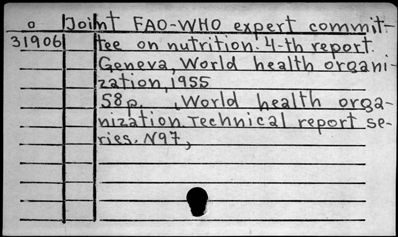 o Joint FAO-WHO expert commit-
31906 tee on nutrition. 4-th report.
Geneva, World health organi-
zation, 1955
58 p. , World health orga-
nization. Technical report se-
ries. N97,